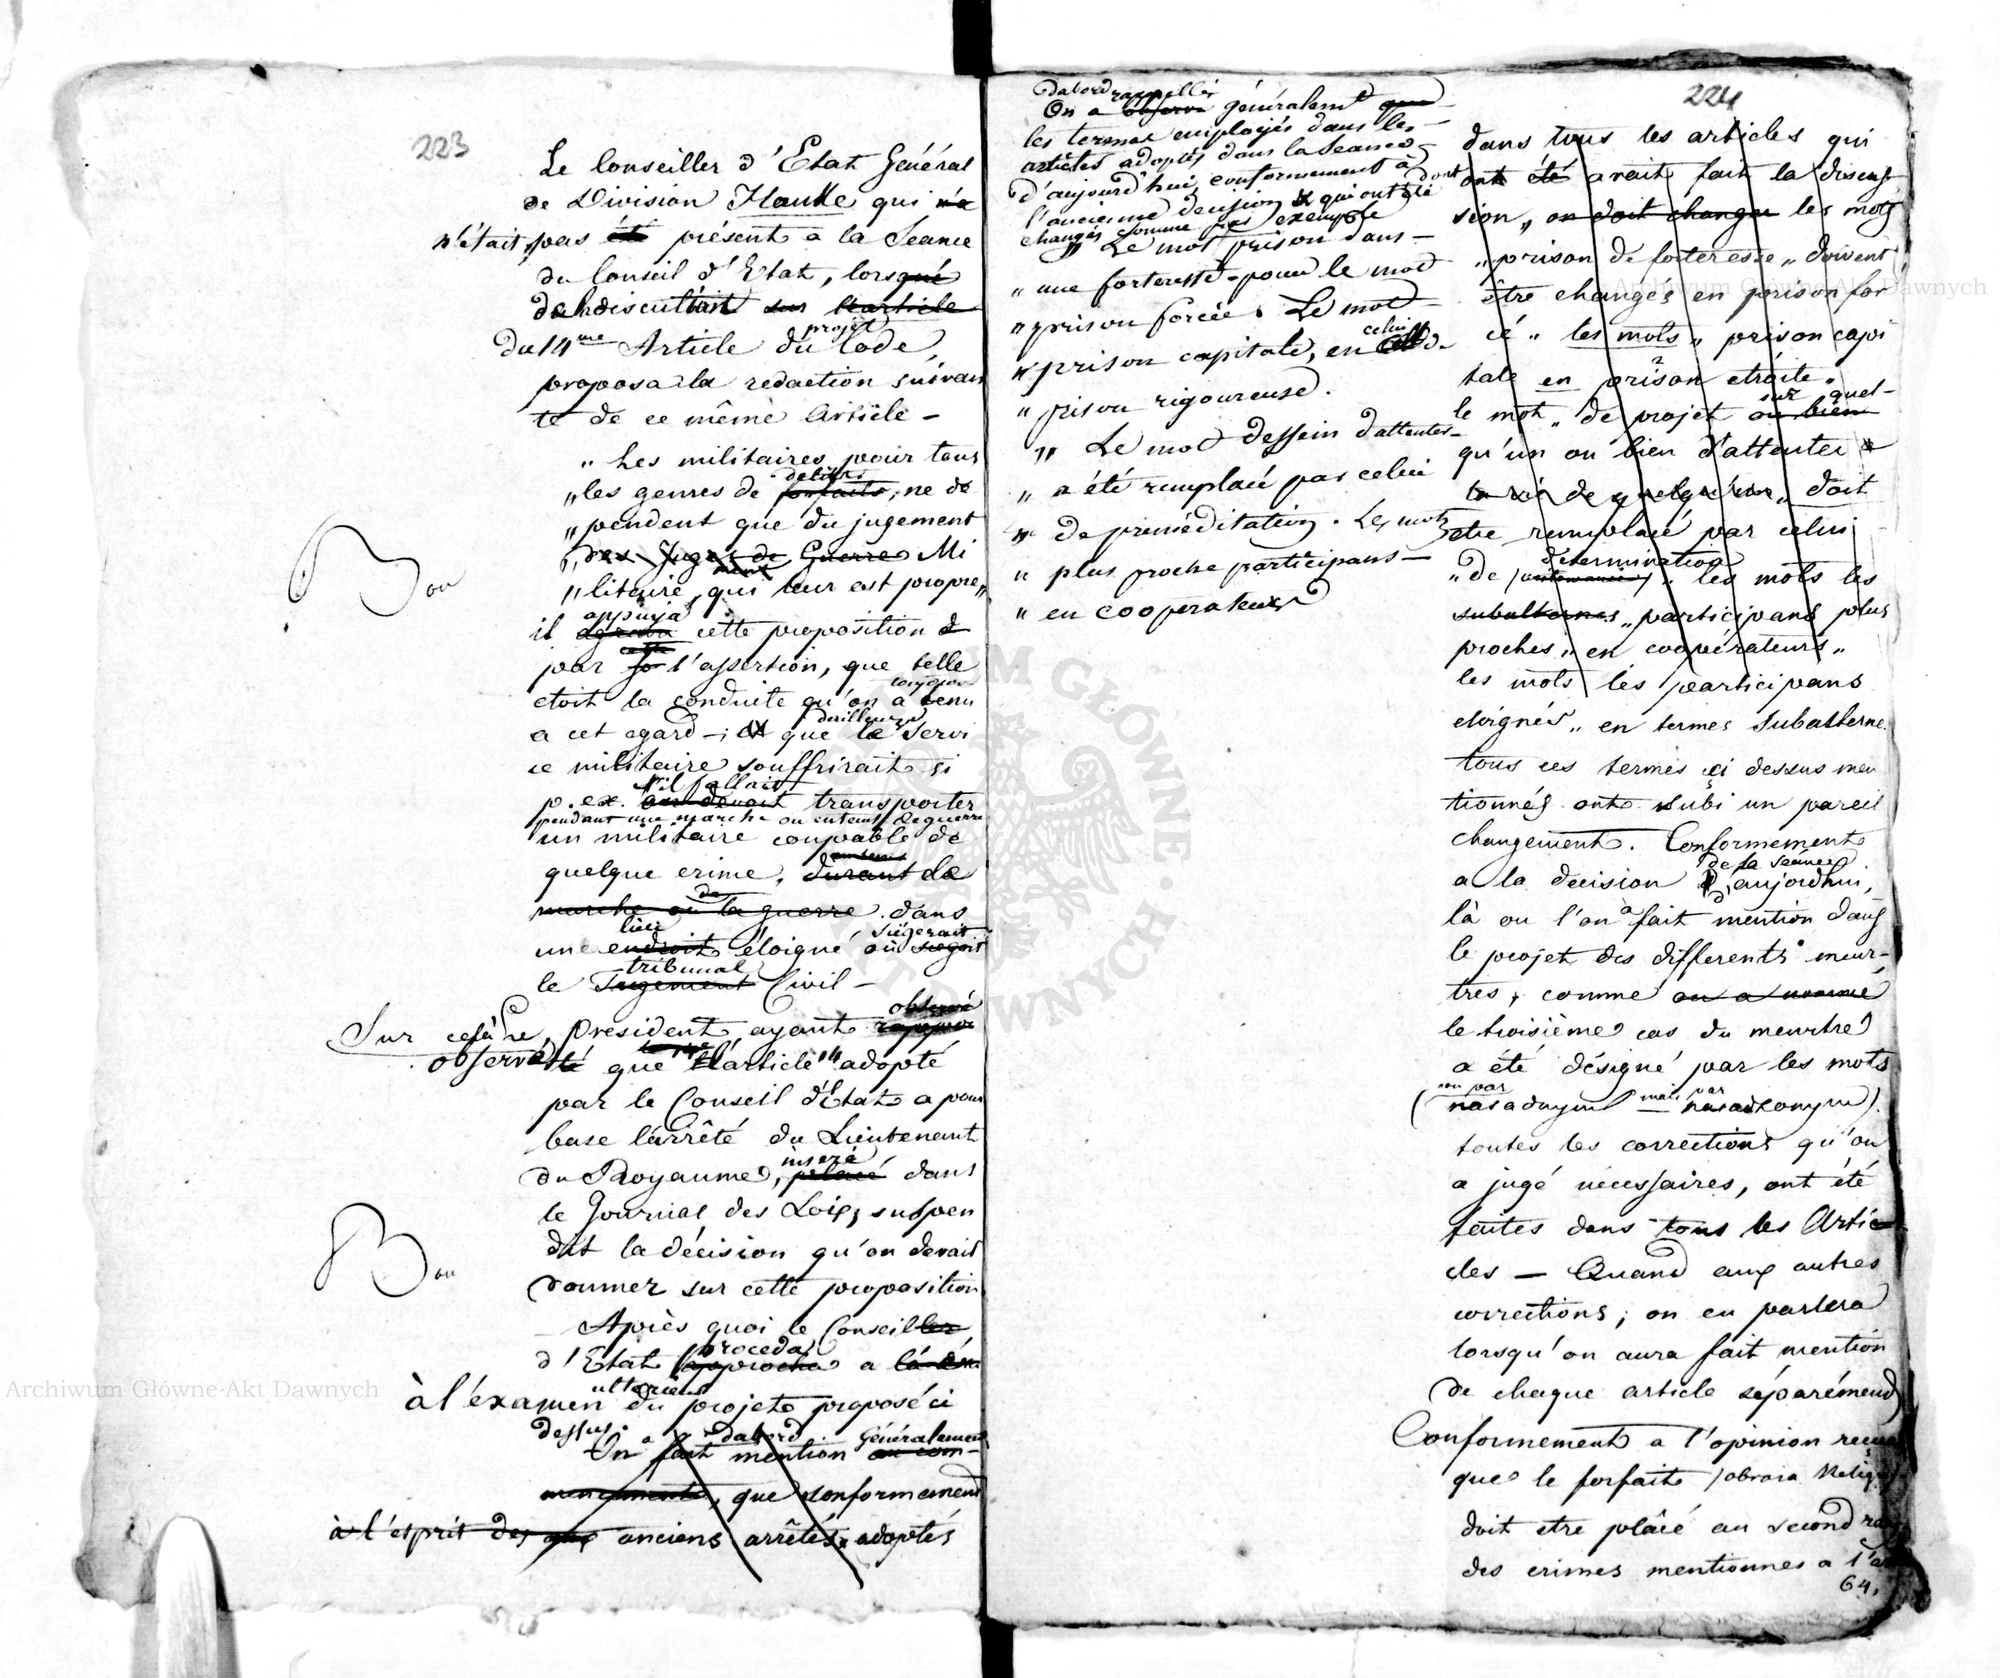 223
Le Conseiller d'Etat Général
de Division Hauke qui n'a
n'était pas été présent a la Seance
du Conseil d'Etat, lorsqué
de discultait sur l'article
projét
Du 14me Article du Code,
proposa la redaction suivan
te de ce même Article -
„ Les militaires pour tous
delits
„ les genres de forfaits, ne dé
„ pendent que du jugement
„ des Juges de Guerre Mi
ment
„ litaire, qui leur est propre „
Bon
appuya
il cette proposition
par l'assertion, que telle
toujours
etoit la conduite qu'on a tenu
d'ailleurs
a cet egard -; et que le Servi
ce militaire souffrirait si
s'il fallait
p. ex. on devait transporter
pendant une marche ou en tems de guerre
un militaire coupable de
quelque crime, durant la
de
marche ou la guerre dans
lieu siégerait
une endroit éloigné où siegoit
tribunal
le Jugement Civil -
Sur cela, le président ayant
observé
observé que l'article 14 adopté
par le Conseil d'Etat a pour
base l'arrêté du Lieutenant
inseré
du Royaume, placé dans
le Journal des Loix, suspen
dit la décision qu'on devait
Bon
donner sur cette proposition
Après quoi le Conseiller
proceda
d'Etat approcha a
ulterieur
à l'éxamen du projet proposé ci
dessus. a dabord Généralement
On fait mention au com-
mencement, que conformement
à l'esprit des anciens arrêtés adoptés
dabord rappellé
On a observé généralemt que
les termes employés dans les
articles adoptés dans la Seance
d'aujourd'hui, conformement à
l'ancienne decision & qui ont été
dont
changés comme par exemple
„ Le mot prison dans
„ une forteresse - pour le mot
„ prison forcée. Le mot
„ prison capitale, en celui de
„ prison rigoureuse.
„ Le mot dessein d'attenter
„ a été remplacé par celui
„ de préméditation. Les mots
„ plus proche participans
„ en cooperateurs
224
dans tous les articles qui
ont été avait fait la discus
sion, on doit changer les mots
„ prison de forteresse „ doivent
être changés en prison for
cé „ les mots „ prison capi
tale en prison etroite „
sur quel-
le mot „ de projet ou bien
qu'un ou bien d'attenter a
la vie de quelqu'un „ doit
etre remplacé par celui
determination
„ de les mots les
subalternes „ participans plus
proches „ en coopérateurs „
les mots les participans
eloignés „ en termes Subalterne
tous ces termes ci dessus men
tionnés ont subi un pareil
changement. Conformement
de la seance
a la decision d'aujordhui,
là ou l'on a fait mention dans
le projet des differents meur-
tres, comme on a nommé
le troisième cas du meurtre
a été désigné par les mots
non par mais par
toutes les corrections qu'on
a jugé necessaires, ont été
faites dans tous les Artic
cles - Quand aux autres
corrections; on en parlera
lorsqu'on aura fait mention
de chaque article séparément
Conformement a l'opinion
que le forfait
doit etre plâcé au second
des crimes mentionnes a
64.
Archiwum Główne Akt Dawnych
Archiwum Główne Akt Dawnych